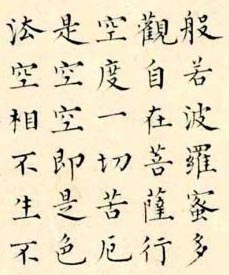 般若波羅蜜多
觀自在菩薩行
空度一切苦厄
是空空即是色
法空相不生不